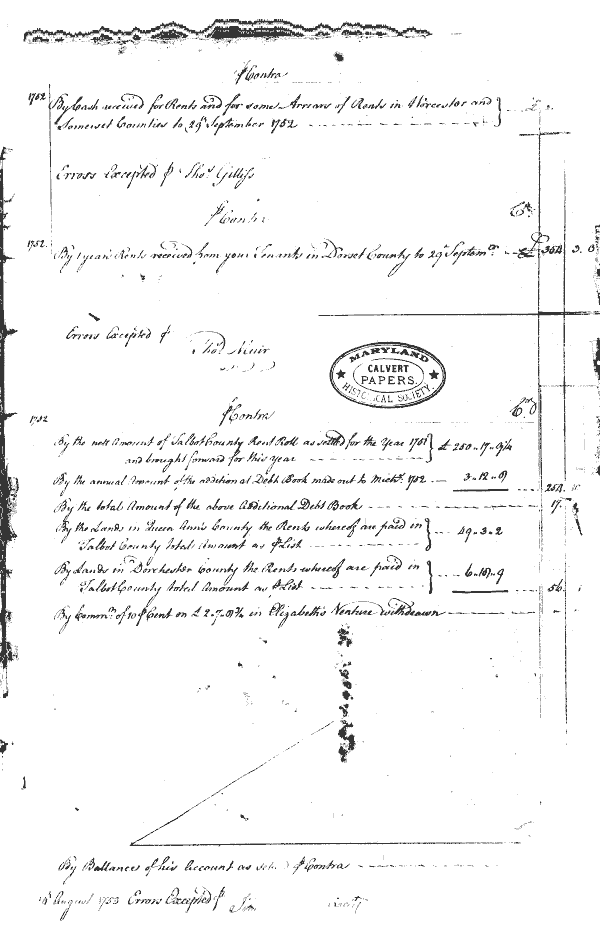 ⅌ Contra
1752 By Cash received for Rents and for some Arrears of Rents in Worcester and
Somerset Counties to 29 September 1752
Errors Excepted ⅌ Thos Gilliss
⅌ Contra Cr
1752 By 1 year Rents received from your Tenants in Dorset County to 29 Septemr 354 3. 0
Errors Excepted ⅌
Thos Muir
MARYLAND
CALVERT
PAPERS.
HISTORICAL SOCIETY.
⅌ Contra Cr
1752
By the nett Amount of Talbot County Rent Roll as settled for the Year 1751
and brought forward for this year £ 250..17..9¼
By the annual Amount of the additional Debt Book made out to Michs. 1752 3..12..
254
By the total Amount of the above Additional Debt Book 17
By the Lands in Queen Anns County the Rents whereof are paid in
Talbot County total Amount as ⅌ List 49..3..2
By Lands in Dorchester County the Rents whereof are paid in
Talbot County total Amount as ⅌ List 6..9
56
By Commn. of 10 ⅌ Cent on £ 2..7.. ¾ in Elizabeth's Venture withdrawn
By Ballances of his Account as ⅌ Contra
August 1753 Errors Excepted ⅌